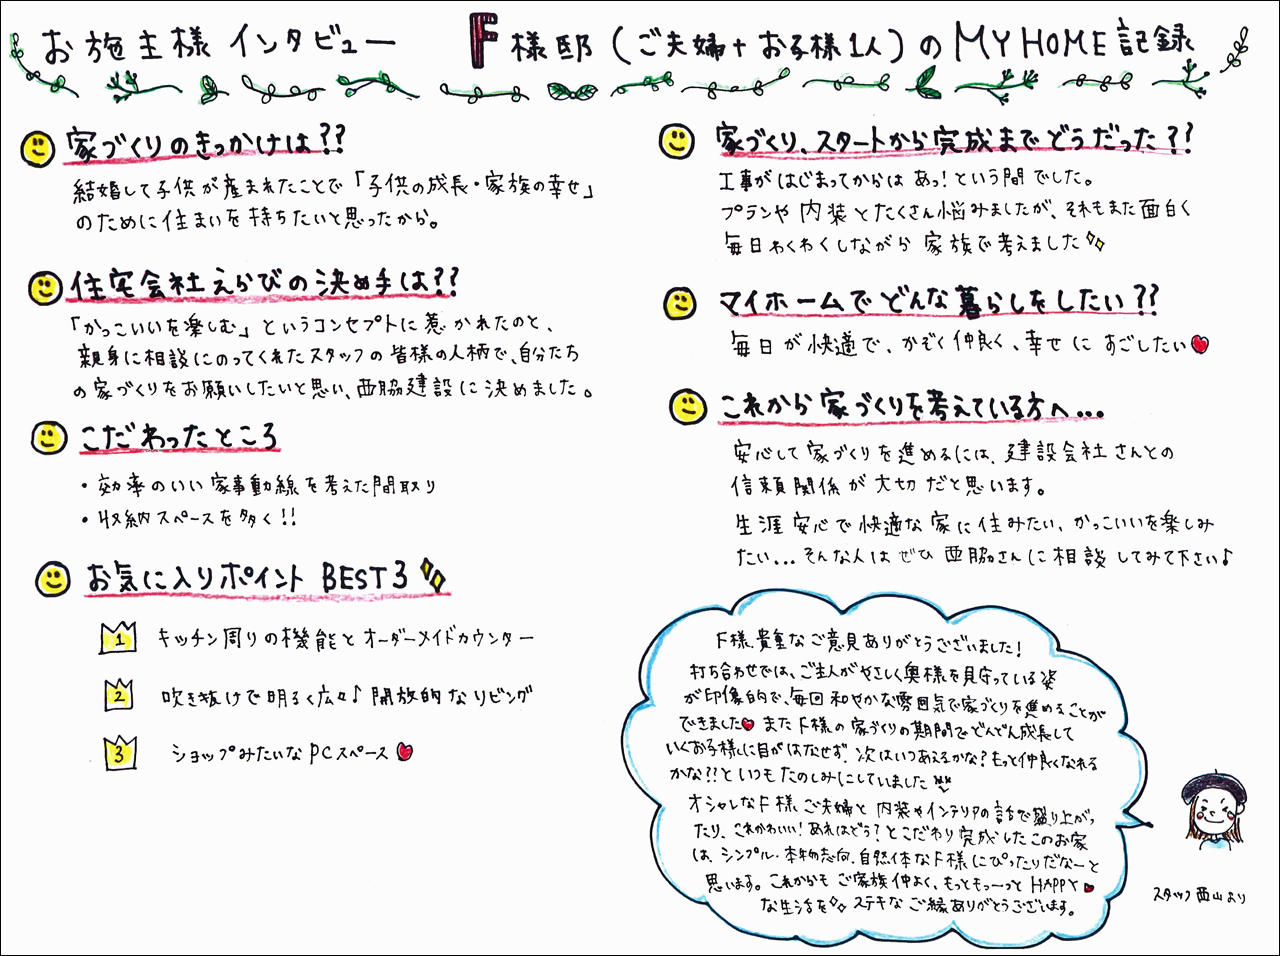 お施主様インタビュー F様邸(ご夫婦+お子様1人)のMY HOME記録
家づくりのきっかけは??
結婚して子供が産まれたことで「子供の成長・家族の幸せ」
のために住まいを持ちたいと思ったから。
住宅会社えらびの決め手は??
「かっこいいを楽しむ」というコンセプトに惹かれたのと、
親身に相談にのってくれたスタッフの皆様の人柄で、自分たち
の家づくりをお願いしたいと思い、西脇建設に決めました。
こだわったところ
・効率のいい家事動線を考えた間取り
・収納スペースを多く!!
お気に入りポイント BEST3
1 キッチン周りの機能とオーダーメイドカウンター
2 吹き抜けで明るく広々♪開放的なリビング
3 ショップみたいなPCスペース
家づくり、スタートから完成までどうだった??
工事がはじまってからはあっ!という間でした。
プランや内装とたくさん悩みましたが、それもまた面白く
毎日わくわくしながら家族で考えました
マイホームでどんな暮らしをしたい??
毎日が快適で、かぞく仲良く、幸せにすごしたい
これから家づくりを考えている方へ...
安心して家づくりを進めるには、建設会社さんとの
信頼関係が大切だと思います。
生涯安心で快適な家に住みたい、かっこいいを楽しみ
たい...そんな人はぜひ西脇さんに相談してみて下さい♪
F様、貴重なご意見ありがとうございました!
打ち合わせでは、ご主人がやさしく奥様を見守っている姿
が印象的で、毎回和やかな雰囲気で家づくりを進めることが
できました またF様の家づくりの期間でどんどん成長して
いくお子様に目がはなせず、次はいつあえるかな?もっと仲良くなれる
かな??といつもたのしみにしていました
オシャレなF様ご夫婦と内装やインテリアの話で盛り上がっ
たり、これかわいい!あれはどう?とこだわり完成したこのお家
は、シンプル・本物志向、自然体なF様にぴったりだなーと
思います。これからもご家族仲よく、もっともっーとHAPPY
な生活を ステキなご縁ありがとうございます。
スタッフ西山より